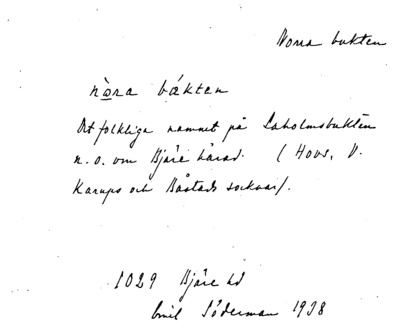 Norra bukten
nòra bákten
Det folkliga namnet på Laholmsbukten
n. o. om Bjäre härad. (Hovs, V.
Karups och Båstads socknar).
1029 Bjäre hd
Emil Söderman 1938